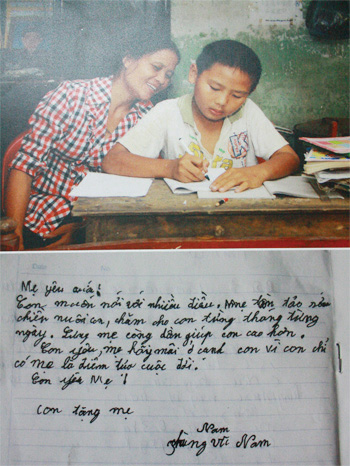 Mẹ yêu
Con muốn nói với nhiều điều. Mẹ tần tảo sớm
chiều nuôi con, chăm cho con từng tháng từng
ngày. Lưng mẹ còng dần giúp con cao hơn.
Con yêu, mẹ hãy mãi ở cạnh con vì con chỉ
có mẹ là điểm tựa cuộc đời.
Con yêu Mẹ!
Con tặng mẹ
Nam
Nam